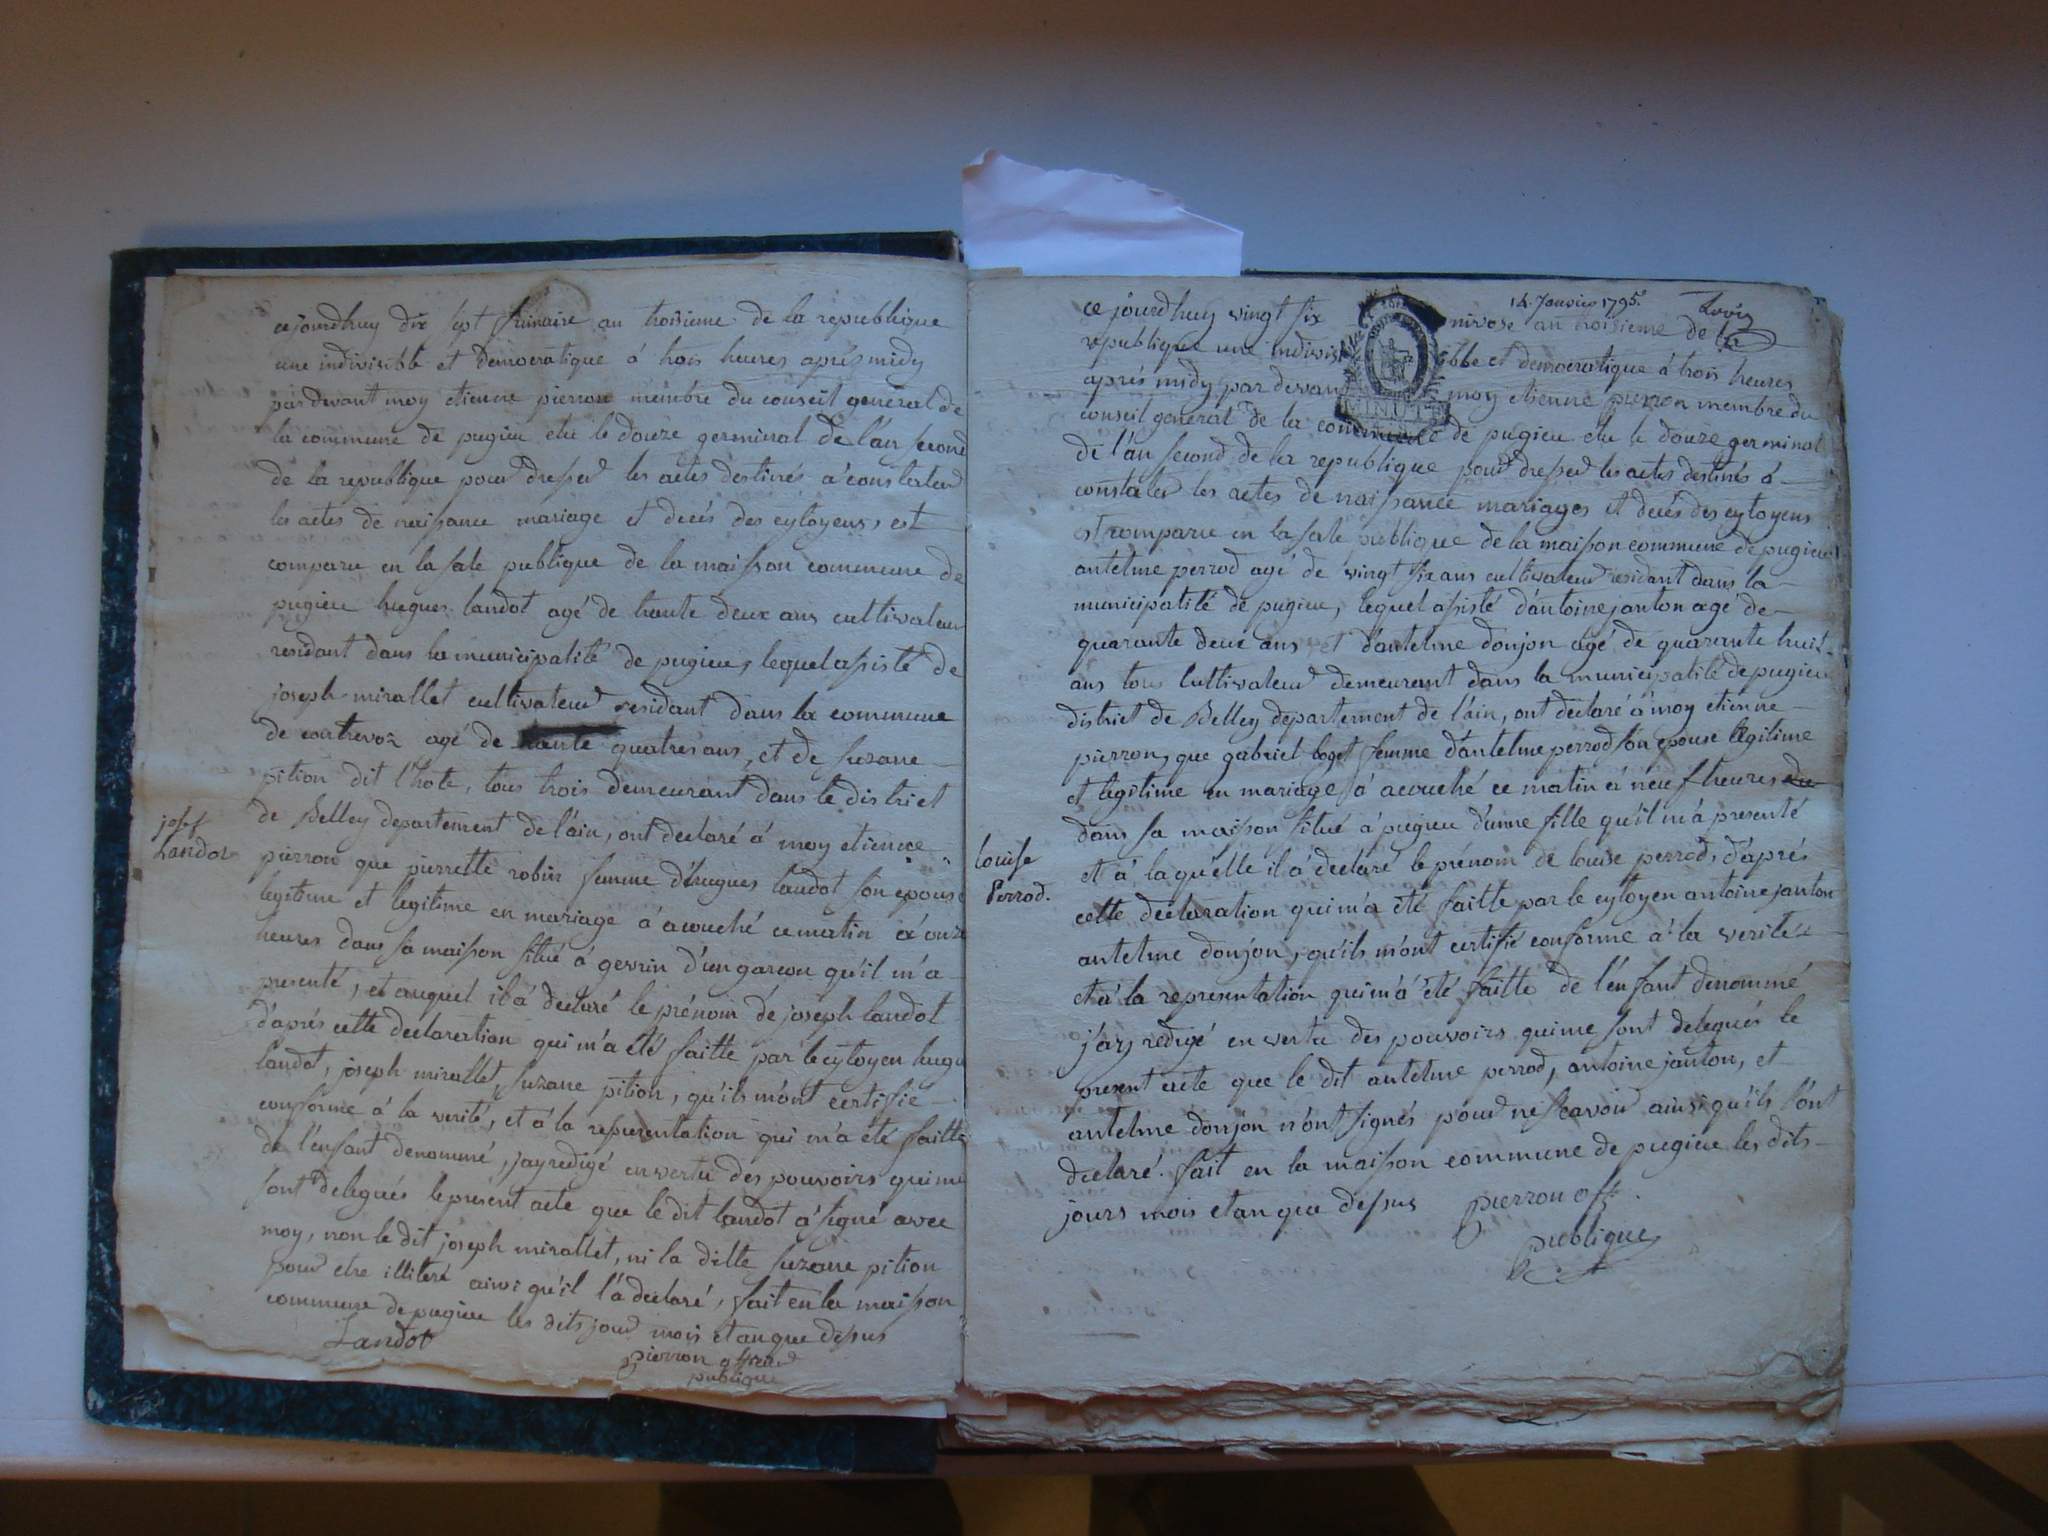 cejourdhuy dix sept frimaire an troisieme de la republique
une indivisible et democratique á trois heures aprés midy
par devant moy etienne pierron membre du conseil general de
la commune de pugieu elu le douze germinal de l'an second
de la republique pour dresser les actes destinés a constater
les actes de naissance mariage et decés des cytoyens, est
comparu en la sale publique de la maison commune de
pugieu hugues landot agé de trante deux ans cultivateur
residant dans la municipalité de pugieu, lequel assisté de
joseph mirallet cultivateur residant dans la commune
de contrevoz agé de quatres ans, et de suzane
pition dit l'hote, tous trois demeurant dans le district
de Belley departement de l'ain, ont declaré á moy etienne
josf
Landot
pierron que pierrette robin femme d'hugues landot son epouse
legitime et legitime en mariage á acouché ce matin á onze
heures dans sa maison situé á gevrin d'un garcon qu'il m'a
presenté, et auquel il á declaré le prénom de joseph landot
d'aprés cette declaration qui m'a été faitte par le cytoyen hugu
landot, joseph mirallet, suzane pition, qu'ils m'ont certifié
conforme á la verité, et á la representation qui m'a été faitte
de l'enfant denommé, jay redigé en vertu des pouvoirs qui me
sont delegués le present acte que le dit landot á signé avec
moy, non le dit joseph mirallet, ni la ditte suzane pition
pour etre illiteré ainsi qu'il l'á declaré, fait en la maison
commune de pugieu les dits jour mois et an que dessus
Landot
pierron officier
publique
14. Janvier 1795.
ce jourdhuy vingt six nivose an troisieme de la
republique une indivisibble et democratique á trois heures
aprés midy par devant moy etienne pierron membre du
MINUTE
conseil general de la commune de pugieu elu le douze germinal
de l'an second de la republique pour dresser les actes destinés á
constater les actes de naissance mariages et decés des cytoyens
est comparu en la sale publique de la maison commune de pugieu
antelme perrod agé de vingt six ans cultivateur residant dans la
municipalité de pugieu, lequel assisté d'antoine janton agé de
quarante deux ans et d'antelme donjon agé de quarante huit
ans tous cultivateur demeurant dans la municipalité de pugieu
district de Belley departement de l'ain, ont declaré á moy etienne
pierron, que gabriel boget femme d'antelme perrod son epouse legitime
et legitime en mariage á acouché ce matin á neuf heures du
dans sa maison situé á pugieu d'unne fille qu'il m'á presenté
louise
Perrod.
et á laquelle il á declaré le prénom de louise perrod, d'aprés
cette declaration qui m'a été faitte par le cytoyen antoine janton
antelme donjon, qu'ils m'ont certifié conforme á la verité
et á la representation qui m'á été faitte de l'enfant denommé
j'ay redigé en vertu des pouvoirs qui me sont delegués le
present acte que le dit antelme perrod, antoine janton, et
antelme donjon n'ont signés pour ne scavoir ainsi qu'ils l'ont
declaré. fait en la maison commune de pugieu les dits
jours mois et an que dessus pierron off.
publique